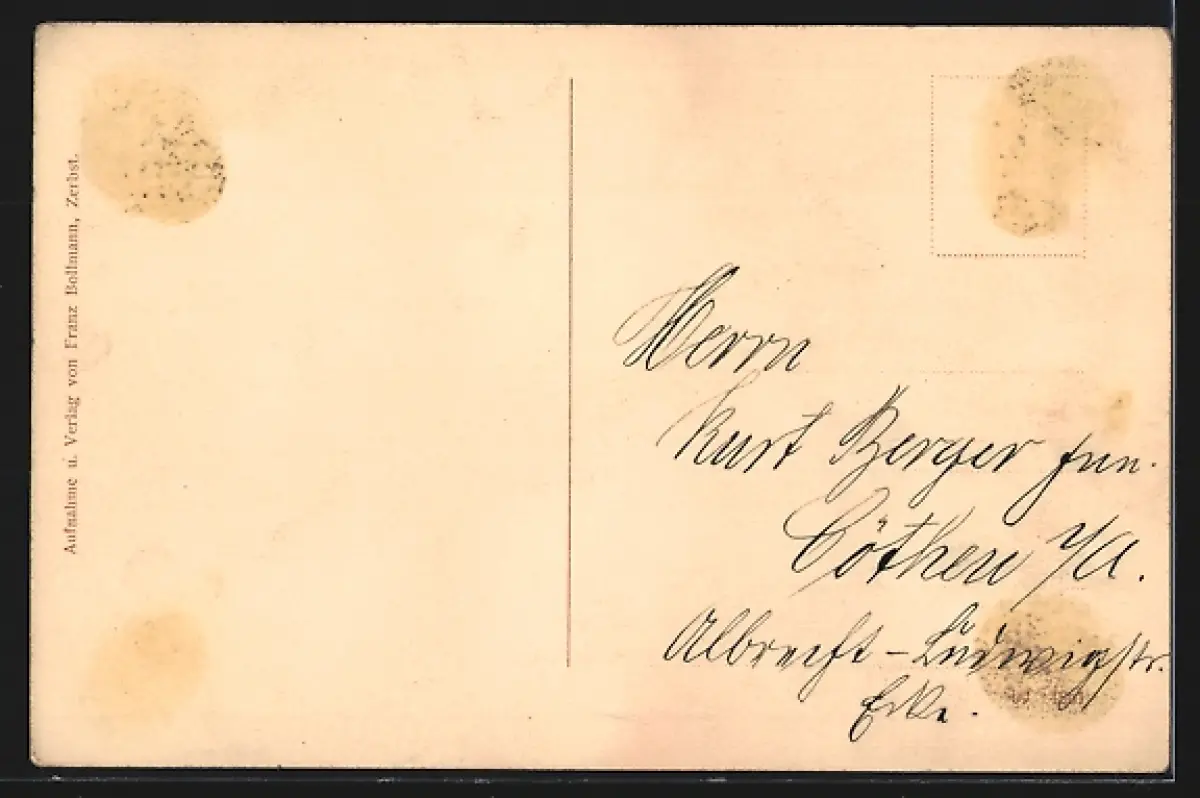 Aufnahme u. Verlag von Franz Bollmann, Zerbst.
Herrn
Kurt Berger jun.
Cöthen i/A.
Albrecht-Ludwigstr.
Ecke.